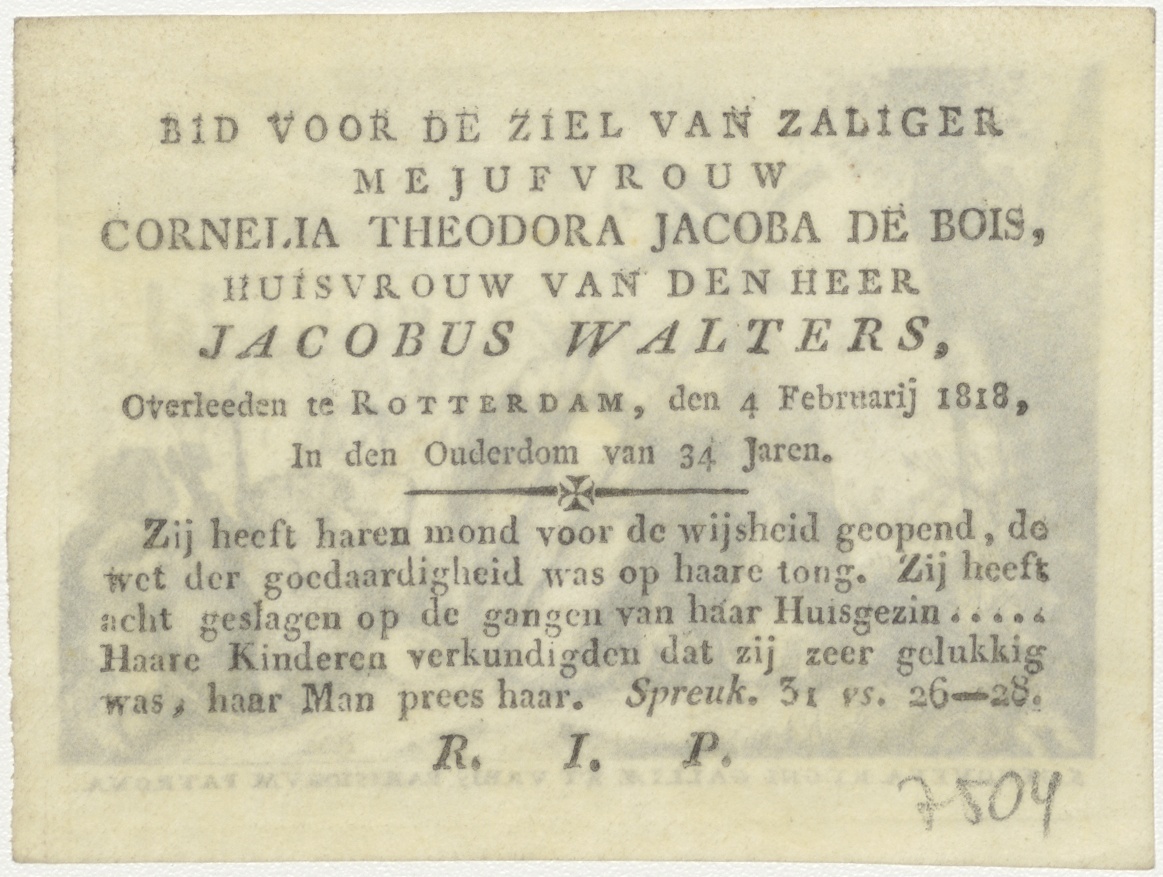 BID VOOR DE ZIEL VAN ZALIGER
MEJUFVROUW
CORNELIA THEODORA JACOBA DE BOIS,
HUISVROUW VAN DEN HEER
JACOBUS WALTERS,
Overleeden te ROTTERDAM, den 4 Februarij 1818,
In den Ouderdom van 34 Jaren.
Zij heeft haren mond voor de wijsheid geopend, de
wet der goedaardigheid was op haare tong. Zij heeft
acht geslagen op de gangen van haar Huisgezin.....
Haare Kinderen verkundigden dat zij zeer gelukkig
was, haar Man prees haar. Spreuk. 31 vs. 26—28.
R. I. P.
7504